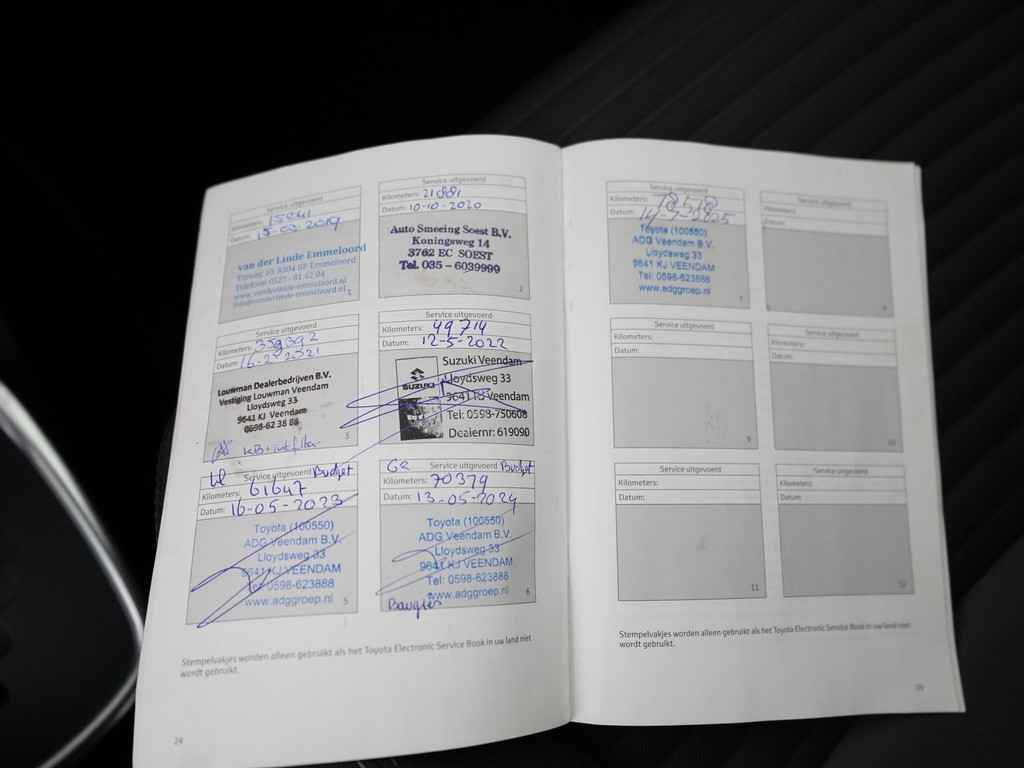 Service uitgevoerd
Kilometers: 15041
Datum: 19-03-2019
van der Linde Emmeloord
Emmeloord
Telefoon 0527 - 61 62 04
1
Service uitgevoerd
Kilometers: 21881
Datum: 10-10-2020
Auto Smeeing Soest B.V.
Koningsweg 14
3762 EC SOEST
Tel. 035 - 6039999
2
Service uitgevoerd
Kilometers:
Datum: 16-2-2021
Louwman Dealerbedrijven B.V.
Vestiging Louwman Veendam
Lloydsweg 33
9641 KJ Veendam
0598-62 38 88
3
Service uitgevoerd
Kilometers: 49714
Datum: 12-5-2022
Suzuki Veendam
Lloydsweg 33
9641 KJ Veendam
Tel: 0598-750608
Dealernr: 619090
Service uitgevoerd Budget
Kilometers: 61647
Datum: 16-05-2023
Toyota (100550)
ADG Veendam B.V.
Lloydsweg 33
9641 KJ VEENDAM
Tel: 0598-623888
www.adggroep.nl
5
Service uitgevoerd Budget
Kilometers: 70379
Datum: 13-05-2024
Toyota (100550)
ADG Veendam B.V.
Lloydsweg 33
9641 KJ VEENDAM
Tel: 0598-623888
www.adggroep.nl
6
Stempelvakjes worden alleen gebruikt als het Toyota Electronic Service Book in uw land niet
wordt gebruikt.
24
Service uitgevoerd
Kilometers: 78518
Datum:
Toyota (100550)
ADG Veendam B.V.
Lloydsweg 33
9641 KJ VEENDAM
Tel: 0598-623888
www.adggroep.nl
7
Service uitgevoerd
Kilometers:
Datum:
8
Service uitgevoerd
Kilometers:
Datum:
9
Service uitgevoerd
Kilometers:
Datum:
10
Service uitgevoerd
Kilometers:
Datum:
11
Service uitgevoerd
Kilometers:
Datum:
12
Stempelvakjes worden alleen gebruikt als het Toyota Electronic Service Book in uw land niet
wordt gebruikt.